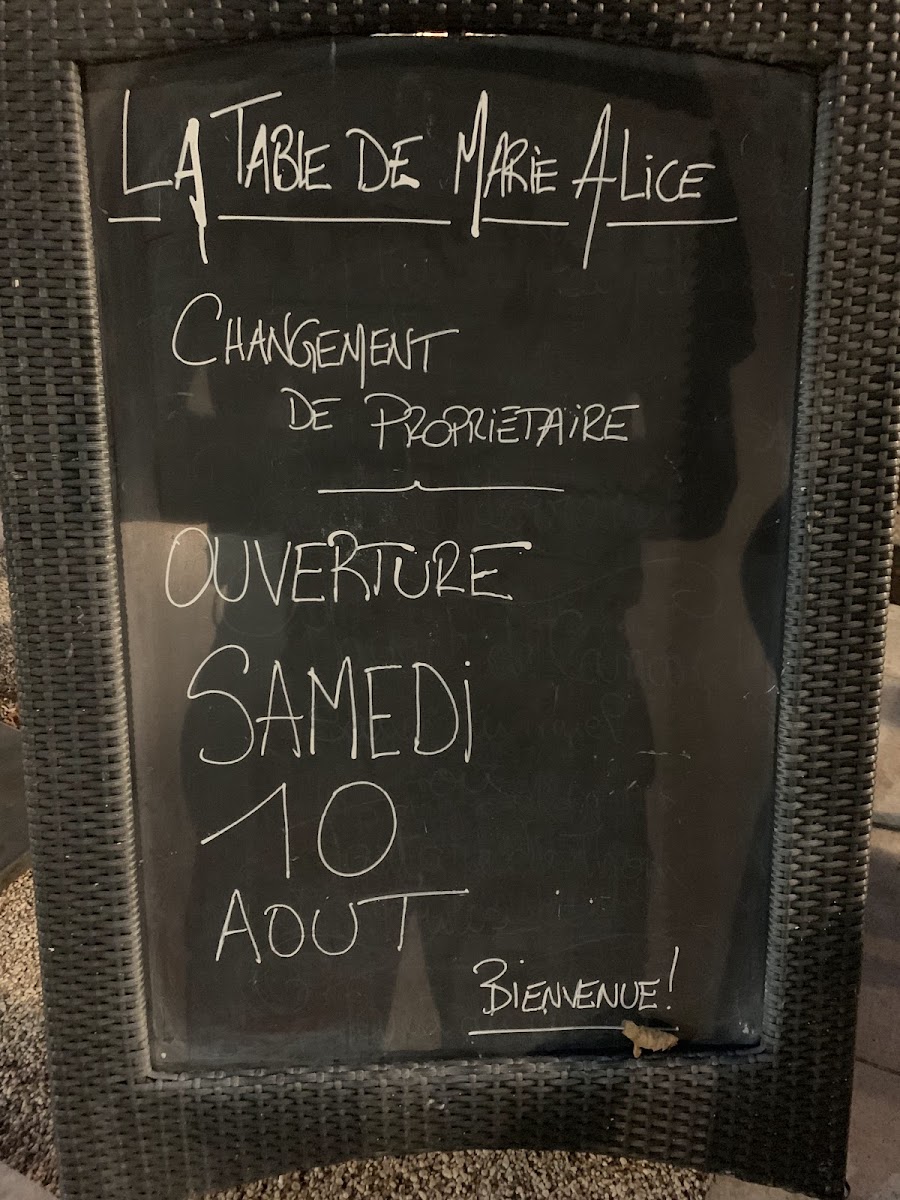 LA TABLE DE MARIE ALICE
CHANGEMENT
DE PROPRIETAIRE
OUVERTURE
SAMEDI
10
AOUT
BIENVENUE!